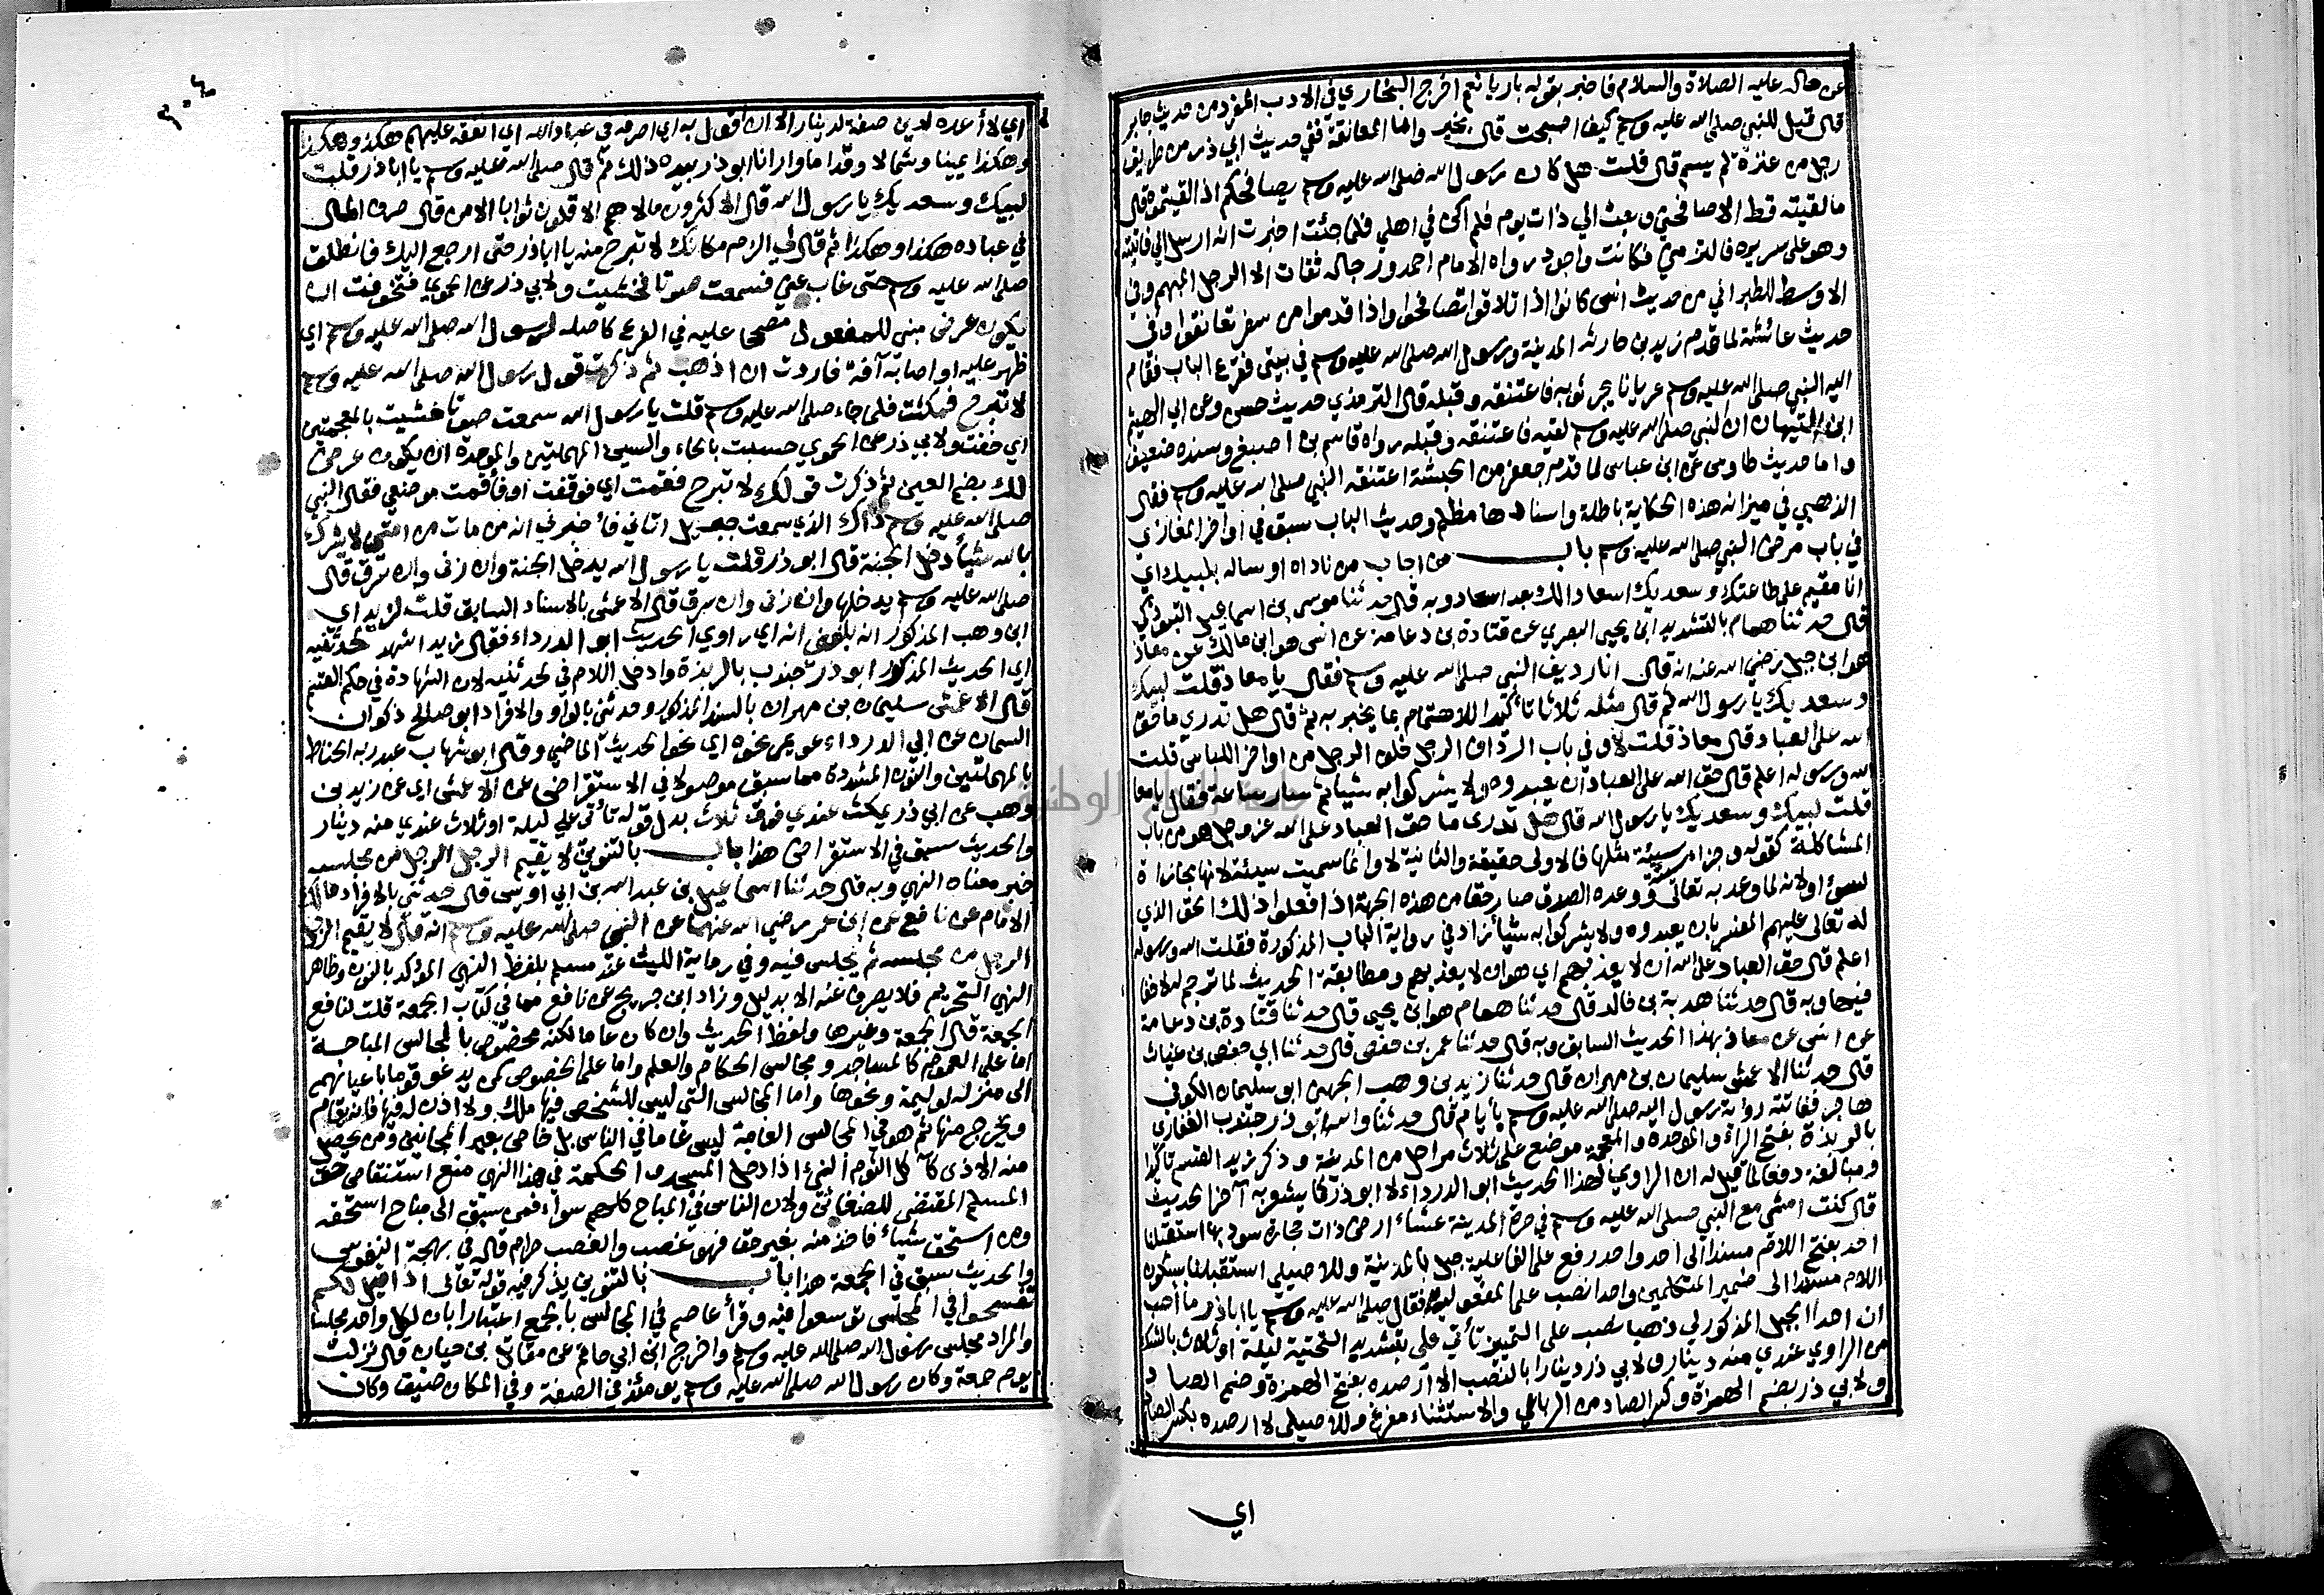 عن حاله عليه الصلاة والسلام فاخبر بقوله بارياً نعم اخرج البخاري في الادب المفرد من حديث جابر
قال قيل للنبي صلى الله عليه وسلم كيف اصبحت قال بخير واما المعانقة ففي حديث ابي ذر من طريق
رجل من عنزة لم يسم قال قلت هل كان رسول الله صلى الله عليه وسلم يصافحكم اذا لقيتموه قال
ما لقيته قط الا صافحني وبعث الي ذات يوم فلم اكن في اهلي فلما جئت اخبرت انه ارسل الي فاتيته
وهو على سريره فالتزمني فكانت واجود رواه الامام احمد ورجاله ثقات الا الرجل المبهم وفي
الاوسط للطبراني من حديث انس كانوا اذا تلاقوا تصافحوا واذا قدموا من سفر تعانقوا وفي
حديث عائشة لما قدم زيد بن حارثه المدينة ورسول الله صلى الله عليه وسلم في بيتي فقرع الباب فقام
اليه النبي صلى الله عليه وسلم عريانا يجر ثوبه فاعتنقه وقبله قال الترمذي حديث حسن وعن ابي الهيثم
ابن التيهان ان النبي صلى الله عليه وسلم لقيه فاعتنقه وقبله رواه قاسم بن اصبغ وسنده ضعيف
واما حديث طاوس عن ابن عباس لما قدم جعفر من الحبشة اعتنقه النبي صلى الله عليه وسلم فقال
الذهبي في ميزانه هذه الحكاية باطلة واسنادها مظلم وحديث الباب سبق في اواخر المغازي
في باب مرض النبي صلى الله عليه وسلم باب من اجاب من ناداه او ساله بلبيك اي
انا مقيم على طاعتك وسعديك اسعادا لك بعد اسعاد وبه قال حدثنا موسى بن اسماعيل التبوذكي
قال حدثنا همام بالتشديد ابن يحيى البصري عن قتادة بن دعامة عن انس هو ابن مالك عن معاذ
هو ابن جبل رضي الله عنه انه قال انا رديف النبي صلى الله عليه وسلم فقال يا معاذ قلت لبيك
وسعديك يا رسول الله ثم قال مثله ثلاثا تاكيدا للاهتمام بما يخبر به ثم قال هل تدري ما حق
الله على العباد قال معاذ قلت لا وفي باب ارداف الرجل خلف الرجل من اواخر اللباس قلت
الله ورسوله اعلم قال حق الله على العباد ان يعبدوه ولا يشركوا به شيئا ثم سار ساعة فقال يا معاذ
قلت لبيك وسعديك يا رسول الله قال هل تدري ما حق العباد على الله عز وجل هو من باب
المشاكلة كقوله وجزاء سيئة سيئة مثلها فالاولى حقيقة والثانية لا وانما سميت سيئة لانها مجازاة
لسوء او لانه لما وعد به تعالى ووعده الصدق صار حقا من هذه الجهة اذا فعلوا ذلك الحق الذي
لله تعالى عليهم المفسر بان يعبدوه ولا يشركوا به شيئا زاد في رواية الباب المذكورة فقلت الله ورسوله
اعلم قال حق العباد على الله ان لا يعذبهم اي هو ان لا يعذبهم ومطابقة الحديث لما ترجم له لا خفا
فيها وبه قال حدثنا هدبة بن خالد قال حدثنا همام هو ابن يحيى قال حدثنا قتادة بن دعامة
عن انس عن معاذ بهذا الحديث السابق وبه قال حدثنا عمر بن حفص قال حدثنا ابي حفص بن غياث
قال حدثنا الاعمش سليمان بن مهران قال حدثنا زيد بن وهب الجهني ابو سليمان الكوفي
هاجر ففاتته رواية رسول الله صلى الله عليه وسلم بأيام قال حدثنا والله ابو ذر جندب الغفاري
بالربذة بفتح الراء والموحدة والمعجمة موضع على ثلاث مراحل من المدينة وذكر زيد القسم تاكيدا
ومبالغة دفعا لما قيل له ان الراوي لهذا الحديث ابو الدرداء لا ابو ذر كما يشعر به آخر الحديث
قال كنت امشي مع النبي صلى الله عليه وسلم في حرة المدينة عشاء ارض ذات حجارة سود بها استقبلنا
احد بفتح اللام مسندا الى احد واحد رفع على الفاعلية جبل بالمدينة وللاصيلي استقبلنا بسكون
اللام مسندا الى ضمير المتكلمين واحدا نصب على المفعولية فقال صلى الله عليه وسلم يا ابا ذر ما احب
ان احدا الجبل المذكور لي ذهبا نصب على التمييز تأتي علي بتشديد التحتية ليلة او ثلاث بالشك
من الراوي عندي منه دينار ولابي ذر دينارا بالنصب الا ارصده بفتح الهمزة وضم الصاد
ولابي ذر بضم الهمزة وكسر الصاد من الرباعي والاستثناء مفرغ وللاصيلي لا ارصده بكسر الصاد
اي
٣٠٤
اي لا أعده لدين صفة لدينار الا ان أقول به اي اصرفه في عباد الله اي انفقه عليهم هكذا وهكذا
وهكذا يمينا وشمالا وقداما وارانا ابو ذر بيده ذلك ثم قال صلى الله عليه وسلم يا ابا ذر قلت
لبيك وسعديك يا رسول الله قال الاكثرون مالا هم الاقلون ثوابا الا من قال صرف المال
في عباده هكذا وهكذا ثم قال لي الزم مكانك لا تبرح منه يا ابا ذر حتى ارجع اليك فانطلق
صلى الله عليه وسلم حتى غاب عني فسمعت صوتا فخشيت ولابي ذر عن الحموي فتخوفت ان
يكون عرض مبني للمفعول مصححا عليه في الفرع كاصله لرسول الله صلى الله عليه وسلم اي
ظهر عليه او اصابة آفة فاردت ان اذهب ثم ذكرت قول رسول الله صلى الله عليه وسلم
لا تبرح فمكثت فلما جاء صلى الله عليه وسلم قلت يا رسول الله سمعت صوتا خشيت بالمعجمتين
اي خفت ولابي ذر عن الحموي حسبت بالحاء والسين المهملتين والموحدة ان يكون عرض
لك بضم العين ثم ذكرت قولك لا تبرح فقمت اي فوقفت او فأقمت موضعي فقال النبي
صلى الله عليه وسلم ذاك الذي سمعت جبريل اتاني فأخبرني انه من مات من امتي لا يشرك
بالله شيئا دخل الجنة قال ابو ذر قلت يا رسول الله يدخل الجنة وان زنى وان سرق قال
صلى الله عليه وسلم يدخلها وان زنى وان سرق قال الاعمش بالاسناد السابق قلت لزيد اي
ابن وهب المذكور انه بلغني انه اي راوي الحديث ابو الدرداء فقال زيد اشهد لحدثنيه
اي الحديث المذكور ابو ذر جندب بالربذة وادخل اللام في لحدثنيه لان الشهادة في حكم القسم
قال الاعمش سليمان بن مهران بالسند المذكور وحدثني بالواو والافراد ابو صالح ذكوان
السمان عن ابي الدرداء عويمر نحوه اي نحو الحديث الماضي وقال ابو شهاب عبد ربه الحناط
بالمهملتين والنون المشددة مما سبق موصولا في الاستقراض عن الاعمش اي عن زيد بن
وهب عن ابي ذر يمكث عندي فوق ثلاث بدل قوله تأتي علي ليلة او ثلاث عندي منه دينار
والحديث سبق في الاستقراض هذا باب بالتنوين لا يقيم الرجل الرجل من مجلسه
خبر معناه النهي وبه قال حدثنا اسماعيل بن عبد الله بن ابي اويس قال حدثني بالافراد مالك
الامام عن نافع عن ابن عمر رضي الله عنهما عن النبي صلى الله عليه وسلم انه قال لا يقيم الرجل
الرجل من مجلسه ثم يجلس فيه وفي رواية الليث عند مسلم بلفظ النهي المؤكد بالنون وظاهر
النهي التحريم فلا يصرف عنه الا بدليل وزاد ابن جريج عن نافع مما في كتاب الجمعة قلت لنافع
الجمعة قال الجمعة وغيرها ولفظ الحديث وان كان عاما لكنه مخصوص بالمجالس المباحة
اما على العموم كالمساجد ومجالس الحكام والعلم واما على الخصوص كمن يدعو قوما باعيانهم
الى منزله لوليمة ونحوها واما المجالس التي ليس للشخص فيها ملك ولا اذن له فيها فانه يقام
ويخرج منها ثم هو في المجالس العامة ليس عاما في الناس بل خاص بغير المجانين ومن يحصل
منه الاذى كآكل الثوم النيء اذا دخل المسجد والحكمة في هذا النهي منع استنقاص حق
المسلم المقتضي للضغائن ولان الناس في المباح كلهم سواء فمن سبق الى مباح استحقه
ومن استحق شيئا فاخذ منه بغير حق فهو غصب والغصب حرام قاله في بهجة النفوس
والحديث سبق في الجمعة هذا باب بالتنوين يذكر فيه قوله تعالى اذا قيل لكم
تفسحوا في المجلس توسعوا فيه وقرأ عاصم في المجالس بالجمع اعتبارا بان لكل واحد مجلسا
والمراد مجلس رسول الله صلى الله عليه وسلم واخرج ابن ابي حاتم عن مقاتل بن حيان قال نزلت
يوم جمعة وكان رسول الله صلى الله عليه وسلم يومئذ في الصفة وفي المكان ضيق وكان